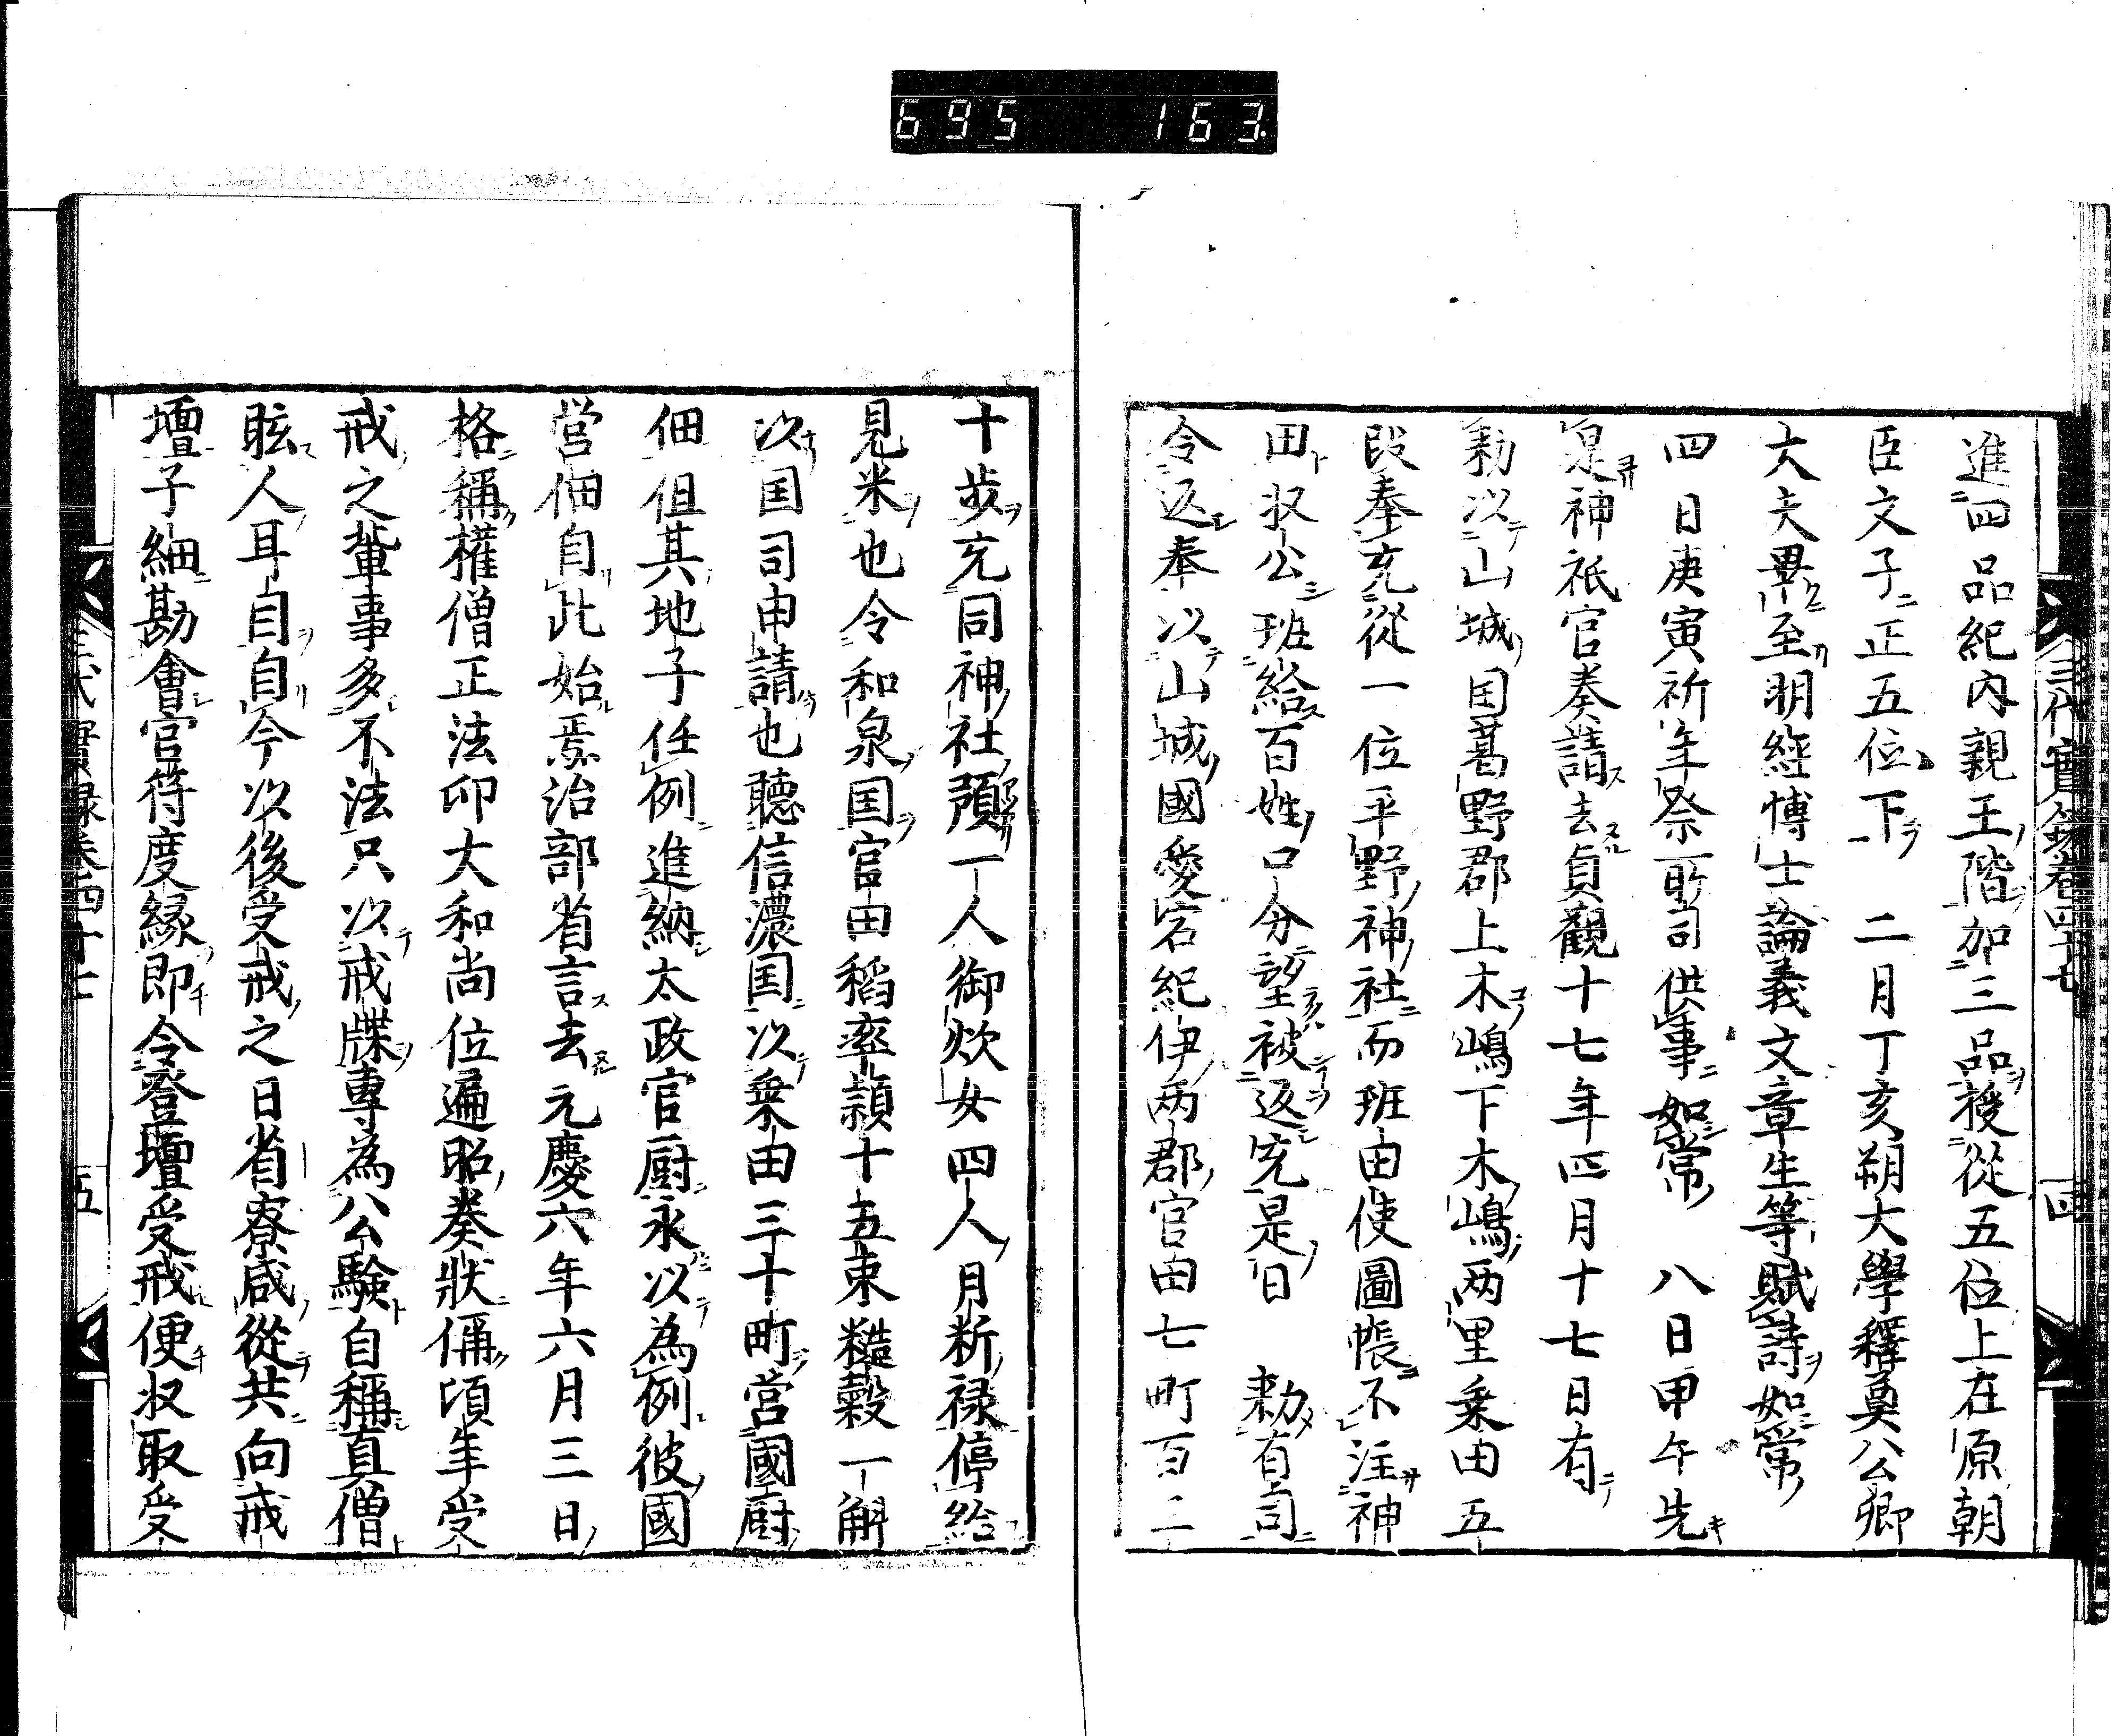 695 163.
三代實錄卷四十七 四
進四品紀内親王階加三品授從五位上在原朝
臣文子正五位下 二月丁亥朔大學釋奠公卿
大夫畢至明經博士論義文章生等賦詩如常
四日庚寅祈年祭所司供事如常 八日甲午先
是神祇官奏請去貞觀十七年四月十七日有
勅以山城国葛野郡上木嶋下木嶋两里乗田五
段奉充從一位平野神社而班田使圖帳不注神
田収公班給百姓口分望被返充是日 勅有司
令返奉以山城國愛宕紀伊两郡官田七町百二
十歩充同神社預一人御炊女四人月料禄停給
見米也令和泉国官田稻率頴十五束糙穀一斛
以国司申請也聽信濃国以乗田三十町営國厨
佃但其地子任例進納太政官厨永以為例彼國
営佃自此始焉治部省言去元慶六年六月三日
格稱權僧正法印大和尚位遍昭奏狀偁頃年受
戒之輩事多不法只以戒牒專為公験自稱真僧
眩人耳目自今以後受戒之日省寮咸從共向戒
壇子細勘會官符度縁即令登壇受戒便収取受
三代實録卷四十七 五